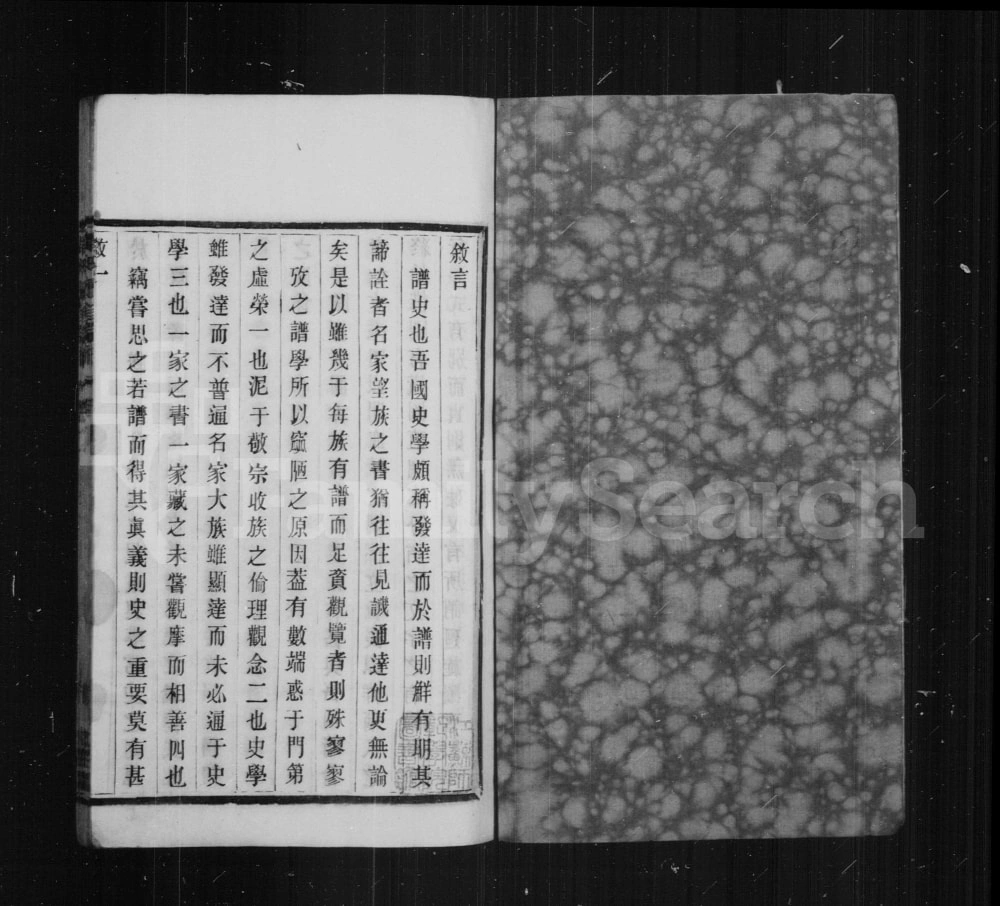 敘言
譜史也吾國史學頗稱發達而於譜則鮮有期其
諦詮者名家望族之書猶往往見譏通達他更無論
矣是以雖幾于每族有譜而足資觀覽者則殊寥寥
攷之譜學所以窳陋之原因葢有數端惑于門第
之虛榮一也泥于敬宗收族之倫理觀念二也史學
雖發達而不普通名家大族雖顯達而未必通于史
學三也一家之書一家藏之未嘗觀摩而相善四也
竊嘗思之若譜而得其眞義則史之重要莫有甚
敘一
FamilySearch